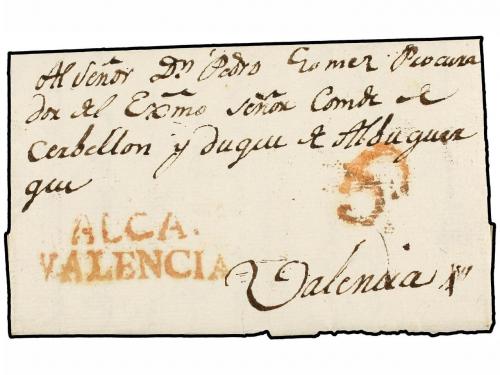 Al Señor Dn Pedro Gomez Procura
dor del Exmo Señor Conde de
Cerbellon y duque de Albuquer
que
ALCA.
VALENCIA
Valencia